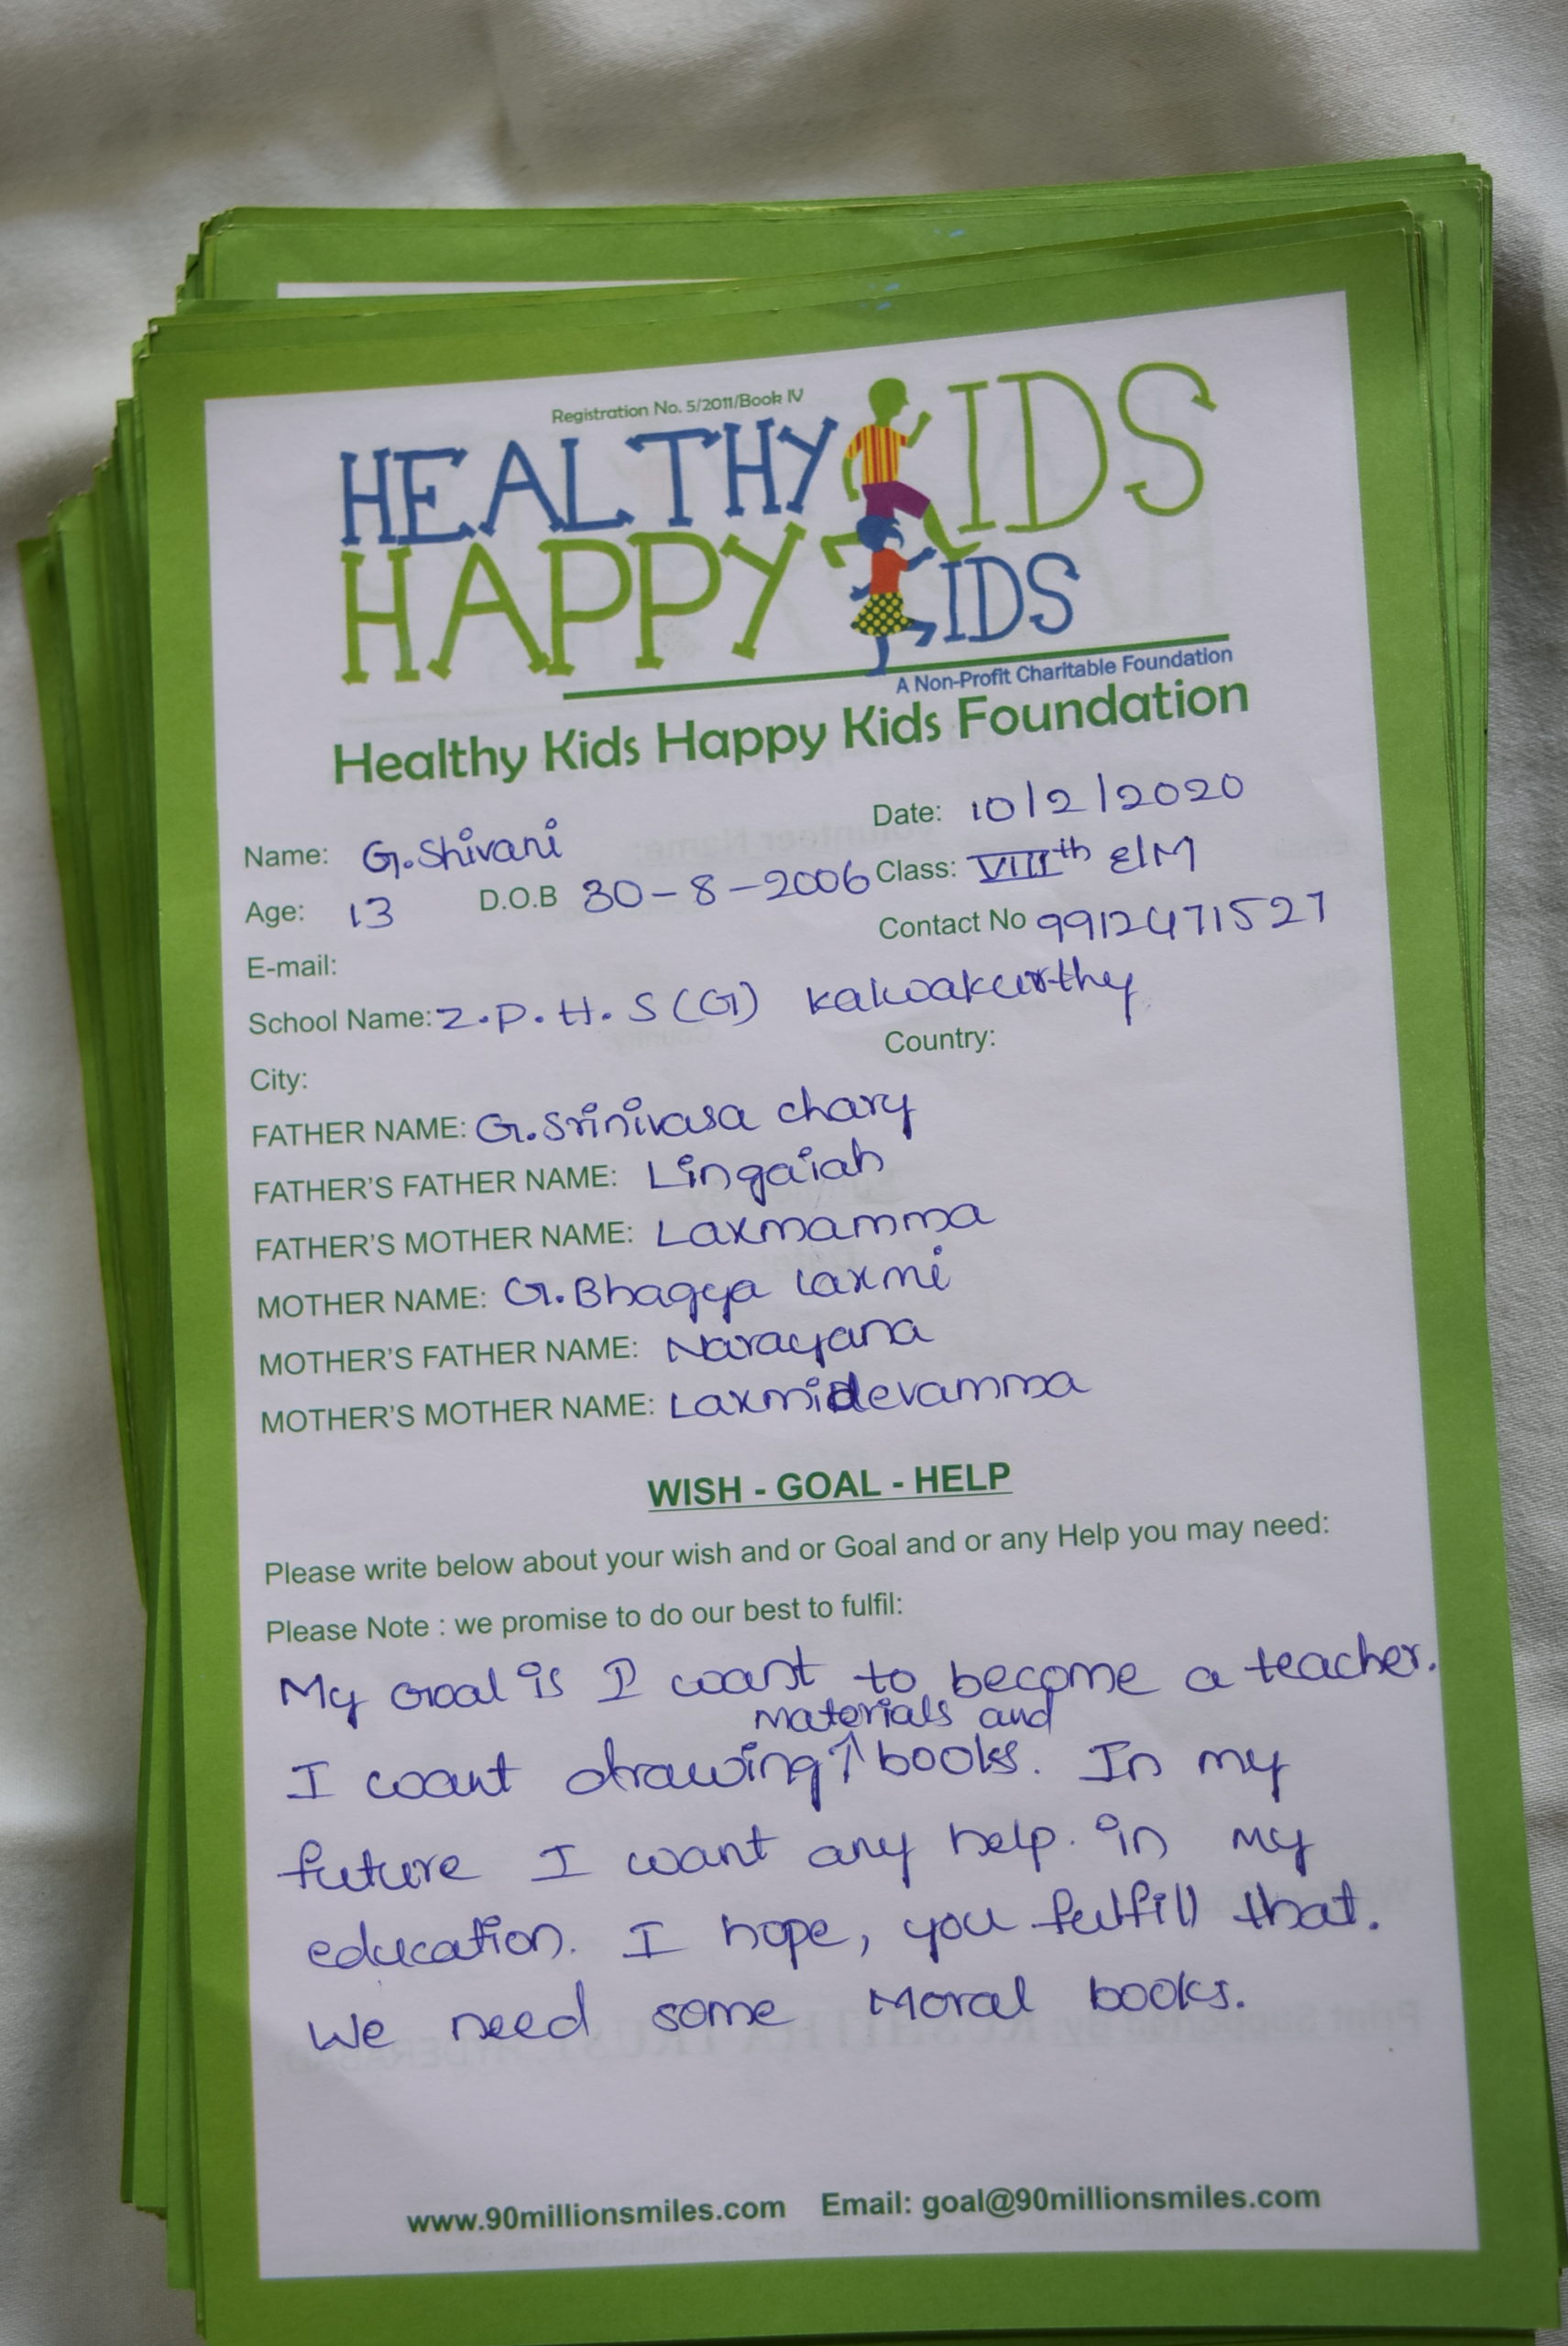 Registration No. 5/2011/Book IV
HEALTHY KIDS
HAPPY KIDS
A Non-Profit Charitable Foundation
Healthy Kids Happy Kids Foundation
Date: 10/2/2020
Name: G.Shivani
Class: VIIIth E/M
Age: 13 D.O.B 30-8-2006
Contact No 9912471527
E-mail:
School Name: Z.P.H.S (G) Kalwakurthy
Country:
City:
FATHER NAME: G.Srinivasa chary
FATHER'S FATHER NAME: Lingaiah
FATHER'S MOTHER NAME: Laxmamma
MOTHER NAME: G.Bhagya laxmi
MOTHER'S FATHER NAME: Narayana
MOTHER'S MOTHER NAME: Laxmidevamma
WISH - GOAL - HELP
Please write below about your wish and or Goal and or any Help you may need:
Please Note : we promise to do our best to fulfil:
My Goal is I want to become a teacher.
materials and
I want drawing↑books. In my
future I want any help. in my
education. I hope, you fulfill that.
We need some Moral books.
www.90millionsmiles.com Email: goal@90millionsmiles.com